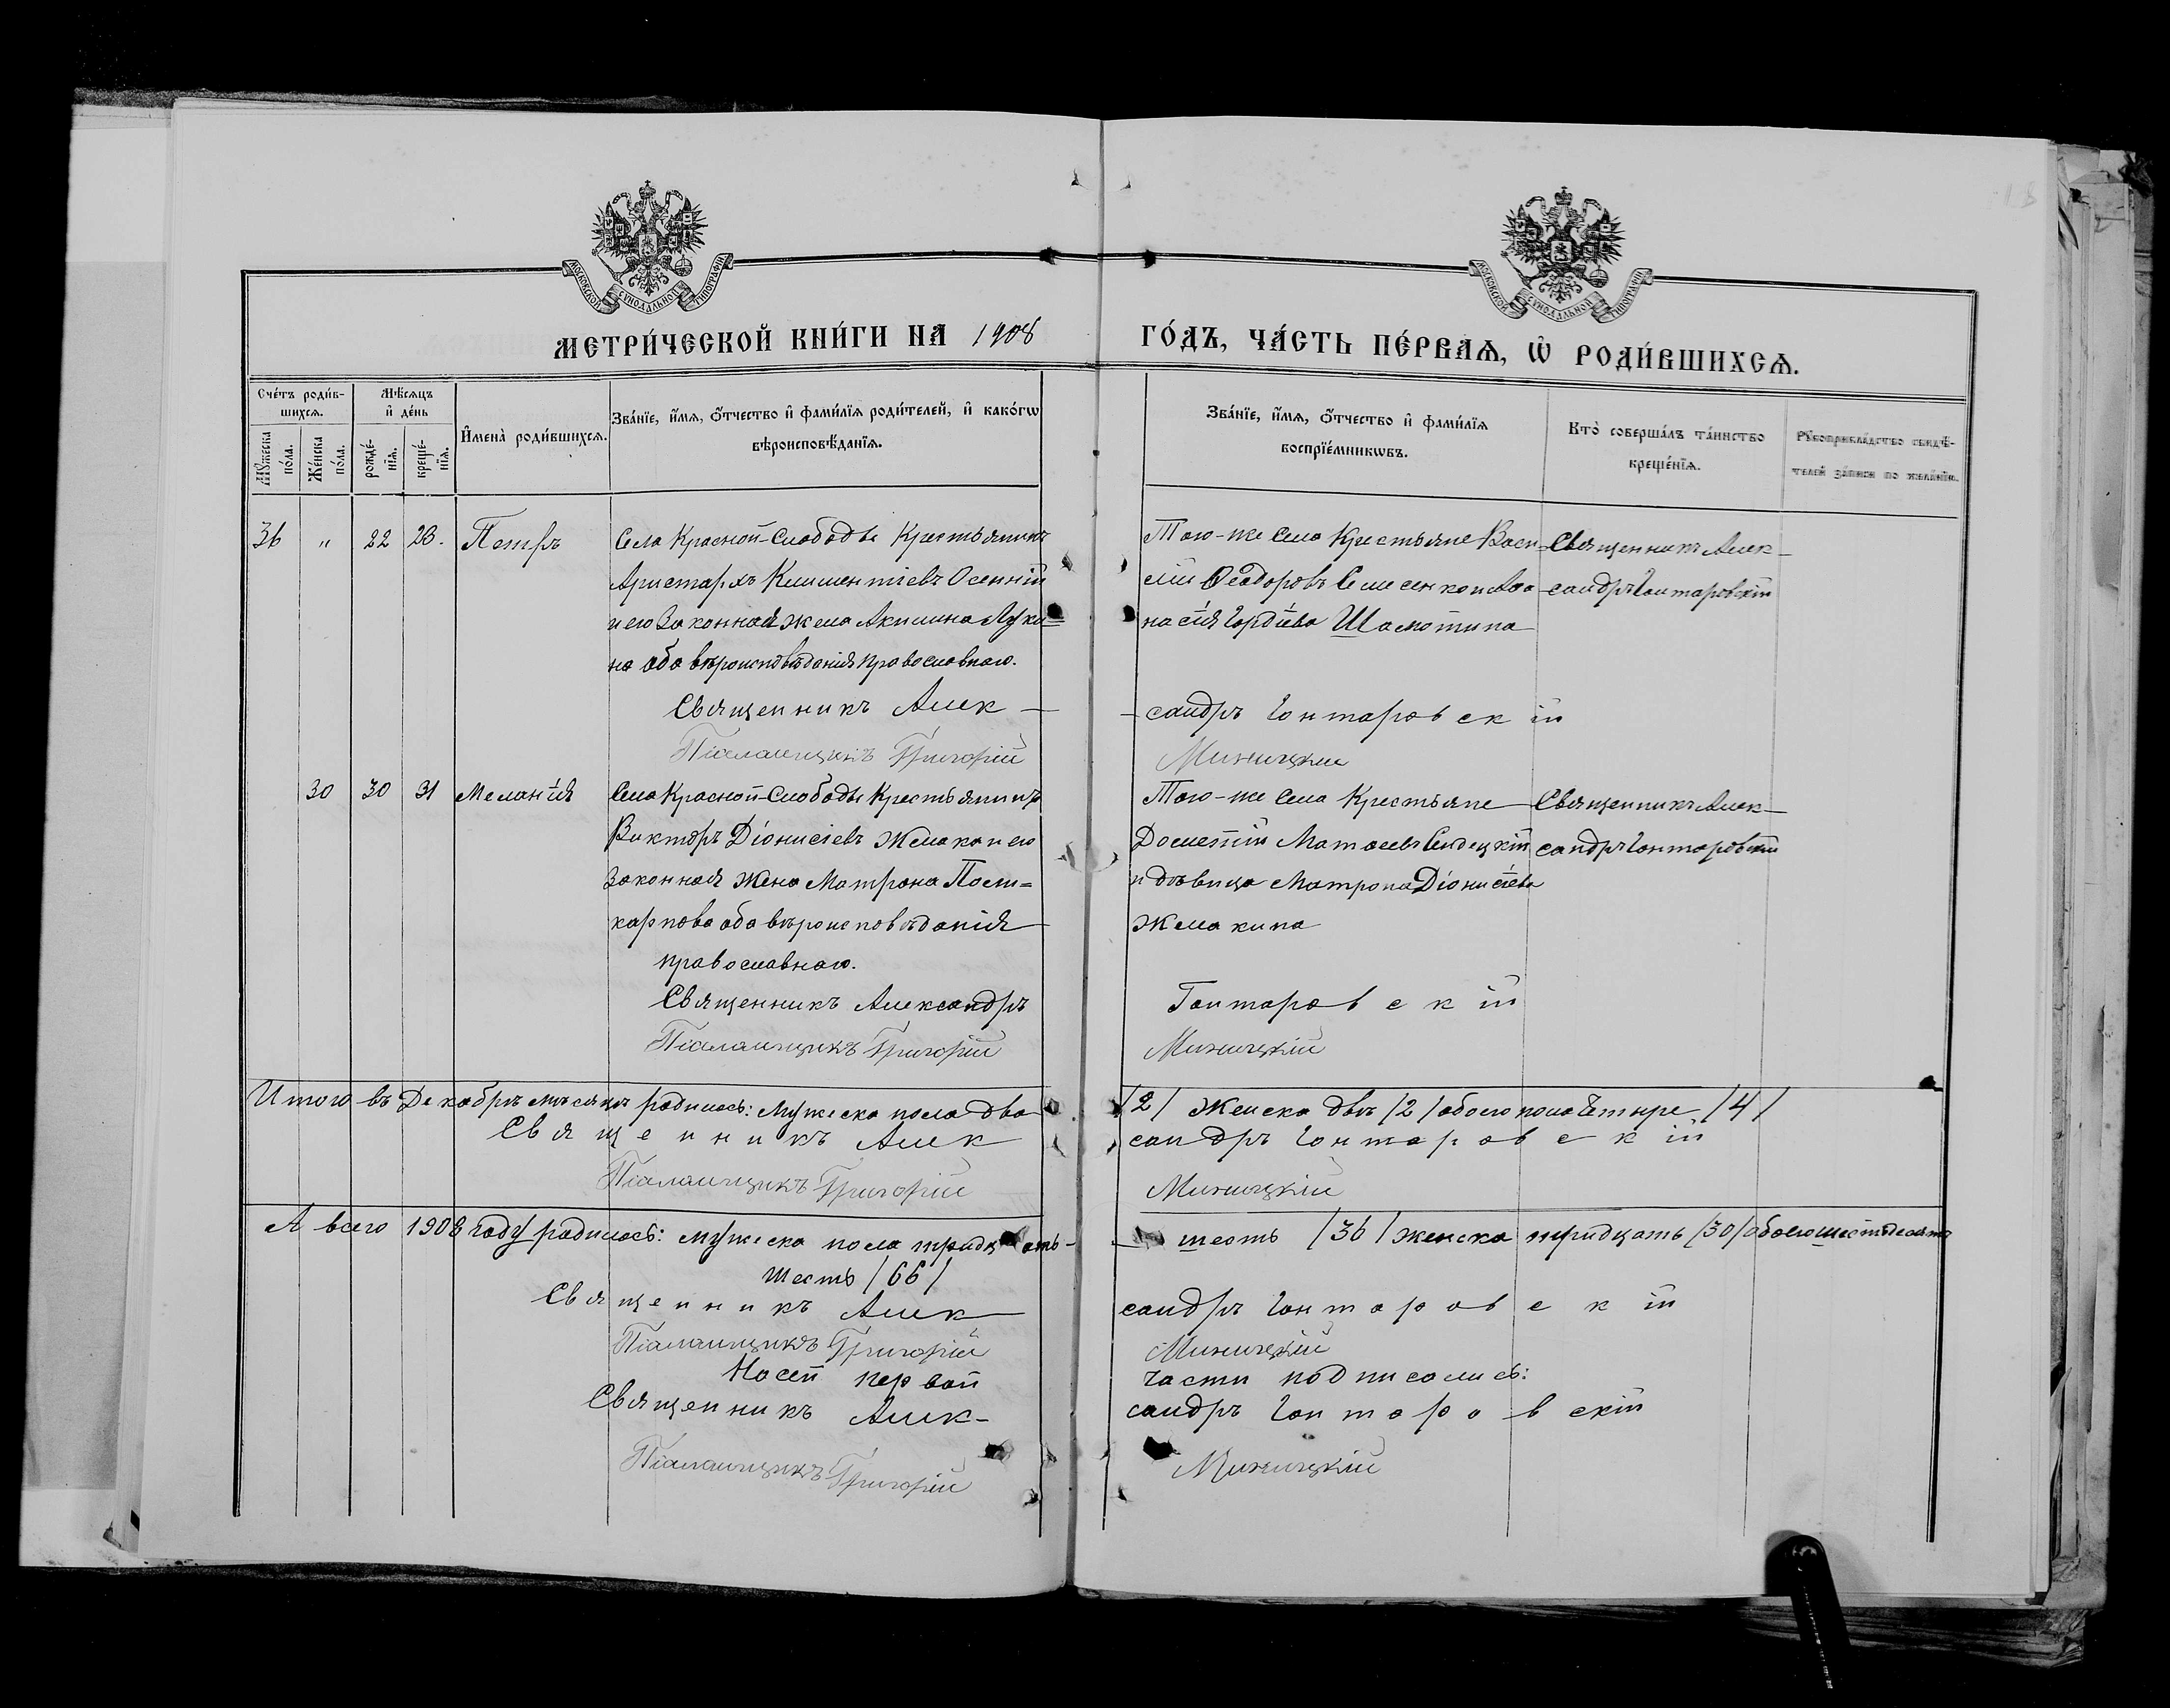 МОСКОВСКОЙ СѴНОДАЛЬНОЙ ТИПОГРАФІИ
МОСКОВСКОЙ СѴНОДАЛЬНОЙ ТИПОГРАФІИ
МЕТРИ́ЧЕСКОЙ КНИ́ГИ НА 1908
ГО́ДЪ, ЧА́СТЬ ПЕ́РВАѦ, Ѡ҆ РОДИ́ВШИХСѦ.
Сче́тъ роди́в-
шихсѧ.
Мꙋ́жеска
по́ла.
Же́нска
по́ла.
Мѣ́сѧцъ
и҆ де́нь
рожде́-
нїѧ.
креще́-
нїѧ.
И҆мена̀ роди́вшихсѧ.
Зва́нїе, и҆́мѧ, ѻ҆́тчество и҆ фами́лїѧ роди́телей, и҆ како́гѡ
вѣроисповѣ́данїѧ.
Зва́нїе, и҆́мѧ, ѻ҆́тчество и҆ фами́лїѧ
воспрїе́мникѡвъ.
Кто̀ соверша́лъ та́инство
креще́нїѧ.
Рꙋкоприкла́дство свидѣ́-
телей за́писи по жела́нїю.
36 " 22 23. Петръ
Села Красной-Слободы Крестьянинъ
Аристархъ Климентіевъ Осенній
и его Законная жена Акилина Луки=
на оба вѣроисповѣданія православнаго.
Священникъ Алек-
Псаломщикъ Григорій
Того-же Села Крестьяне Васи-
лій Ѳеодоровъ Семесенко и Аѳа
насія Гордіева Шамотина
Священникъ Алек-
сандръ Гонтаровскій
-сандръ Гонтаровскій
Миницкій
30 30 31 Меланія
Села Красной-Слободы Крестьянинъ
Викторъ Діонисіевъ Жмака и его
Законная Жена Матрона Поли=
карпова оба вѣроисповѣданія
православнаго.
Священникъ Александръ
Псаломщикъ Григорій
Того-же Села Крестьяне
Дометій Матѳеевъ
и дѣвица Матрона Діонисіева
Жмакина
Священникъ Алек-
сандръ Гонтаровскій
Гонтаровскій
Миницкій
Итого въ Декабрѣ мѣсяцѣ родилось: Мужеска пола два
/2/ Женска двѣ /2/ обоего пола Четыре /4/
Священникъ Алек
сандръ Гонтаровскій
Псаломщикъ Григорій
Миницкій
А всего 1908 году родилось: мужеска пола тридцать-
- шесть /36/ женска тридцать /30/ обоего шестьдесятъ
Шесть /66/
Священникъ Алек
сандръ Гонтаровскій
Псаломщикъ Григорій
Миницкій
Къ сей первой
части подписались:
Священникъ Алек-
сандръ Гонтаровскій
Псаломщикъ Григорій
Миницкій